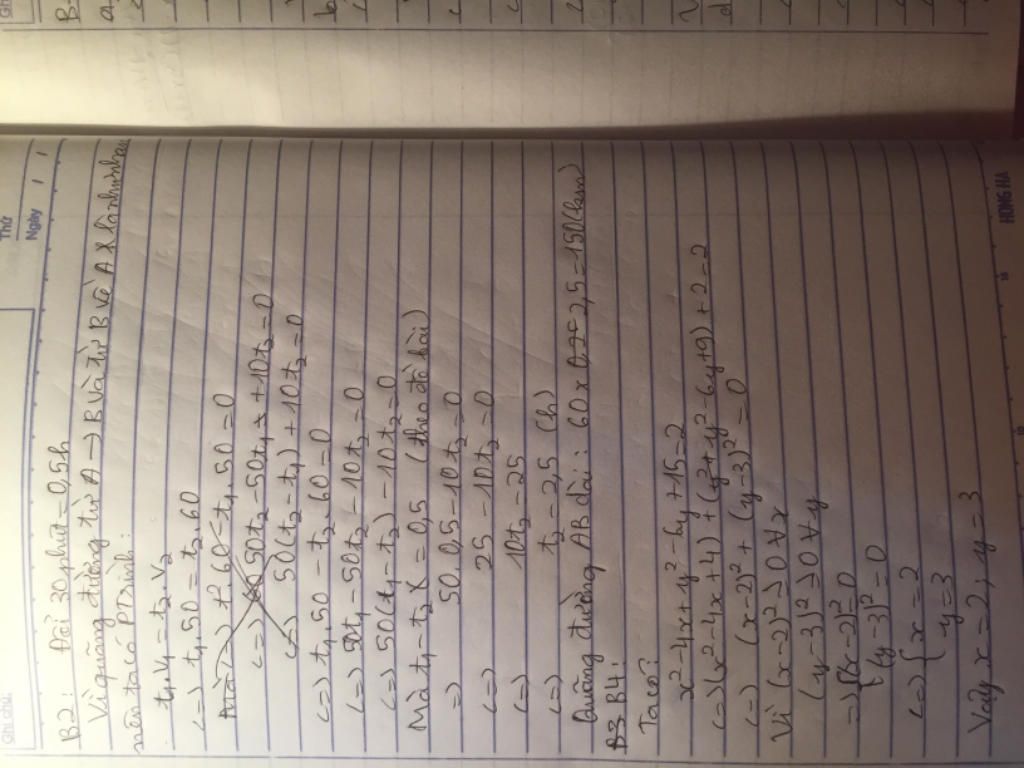 Thứ
Ngày
Ghi chú:
B2: Đổi 30 phút = 0,5h
Vì quãng đường từ A → B và từ B về A là như nhau
nên ta có PT
t₁.v₁ = t₂.v₂
<=> t₁.50 = t₂.60
<=> 50(t₂-t₁) + 10t₂ = 0
<=> t₁.50 - t₂.60 = 0
<=> 50t₁ - 50t₂ - 10t₂ = 0
<=> 50(t₁-t₂) - 10t₂ = 0
Mà t₁-t₂ = 0,5 (theo đề bài)
=> 50.0,5-10t₂ = 0
<=> 25 - 10t₂ = 0
<=> 10t₂ = 25
<=> t₂ = 2,5 (h)
Quãng đường AB dài: 60 x 2,5 = 150 (km)
B4:
Ta có:
x² - 4x + y² - 6y + 15 = 2
<=> (x² - 4x + 4) + (y² - 6y + 9) + 2 = 2
<=> (x-2)² + (y-3)² = 0
Vì (x-2)² ≥ 0 ∀x
(y-3)² ≥ 0 ∀y
=> { (x-2)² = 0
(y-3)² = 0
<=> { x = 2
y = 3
Vậy x = 2, y = 3
HONG HA